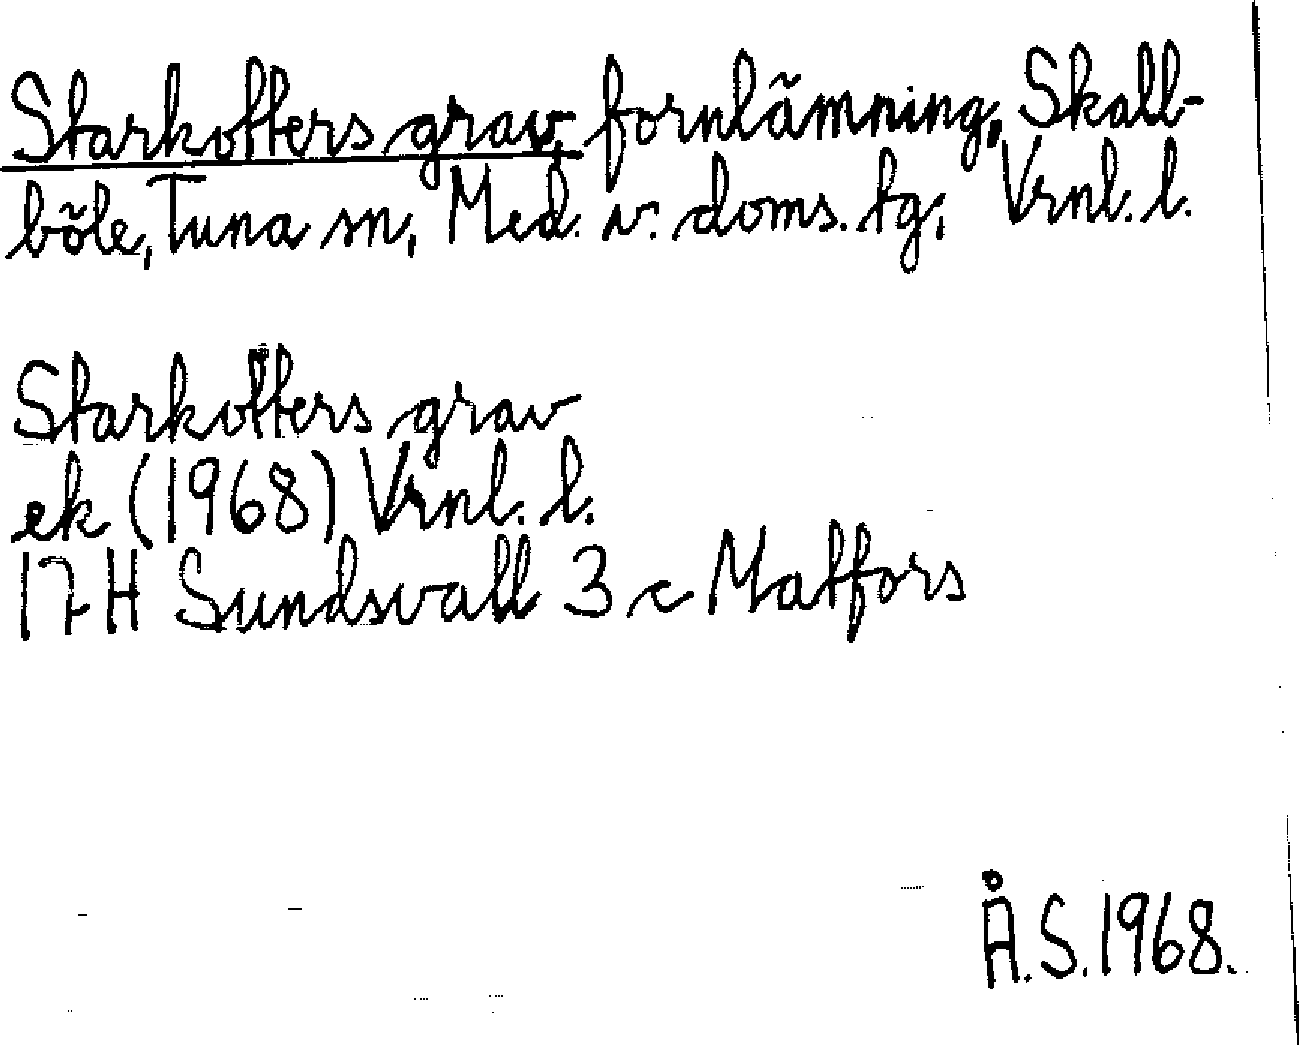 Starkotters grav, fornlämning, Skall-
böle, Tuna sn, Med. v. doms. tg, Vrnl. l.
Starkotters grav
ek (1968) Vrnl. l.
17H Sundsvall 3 c Matfors
Å.S. 1968.